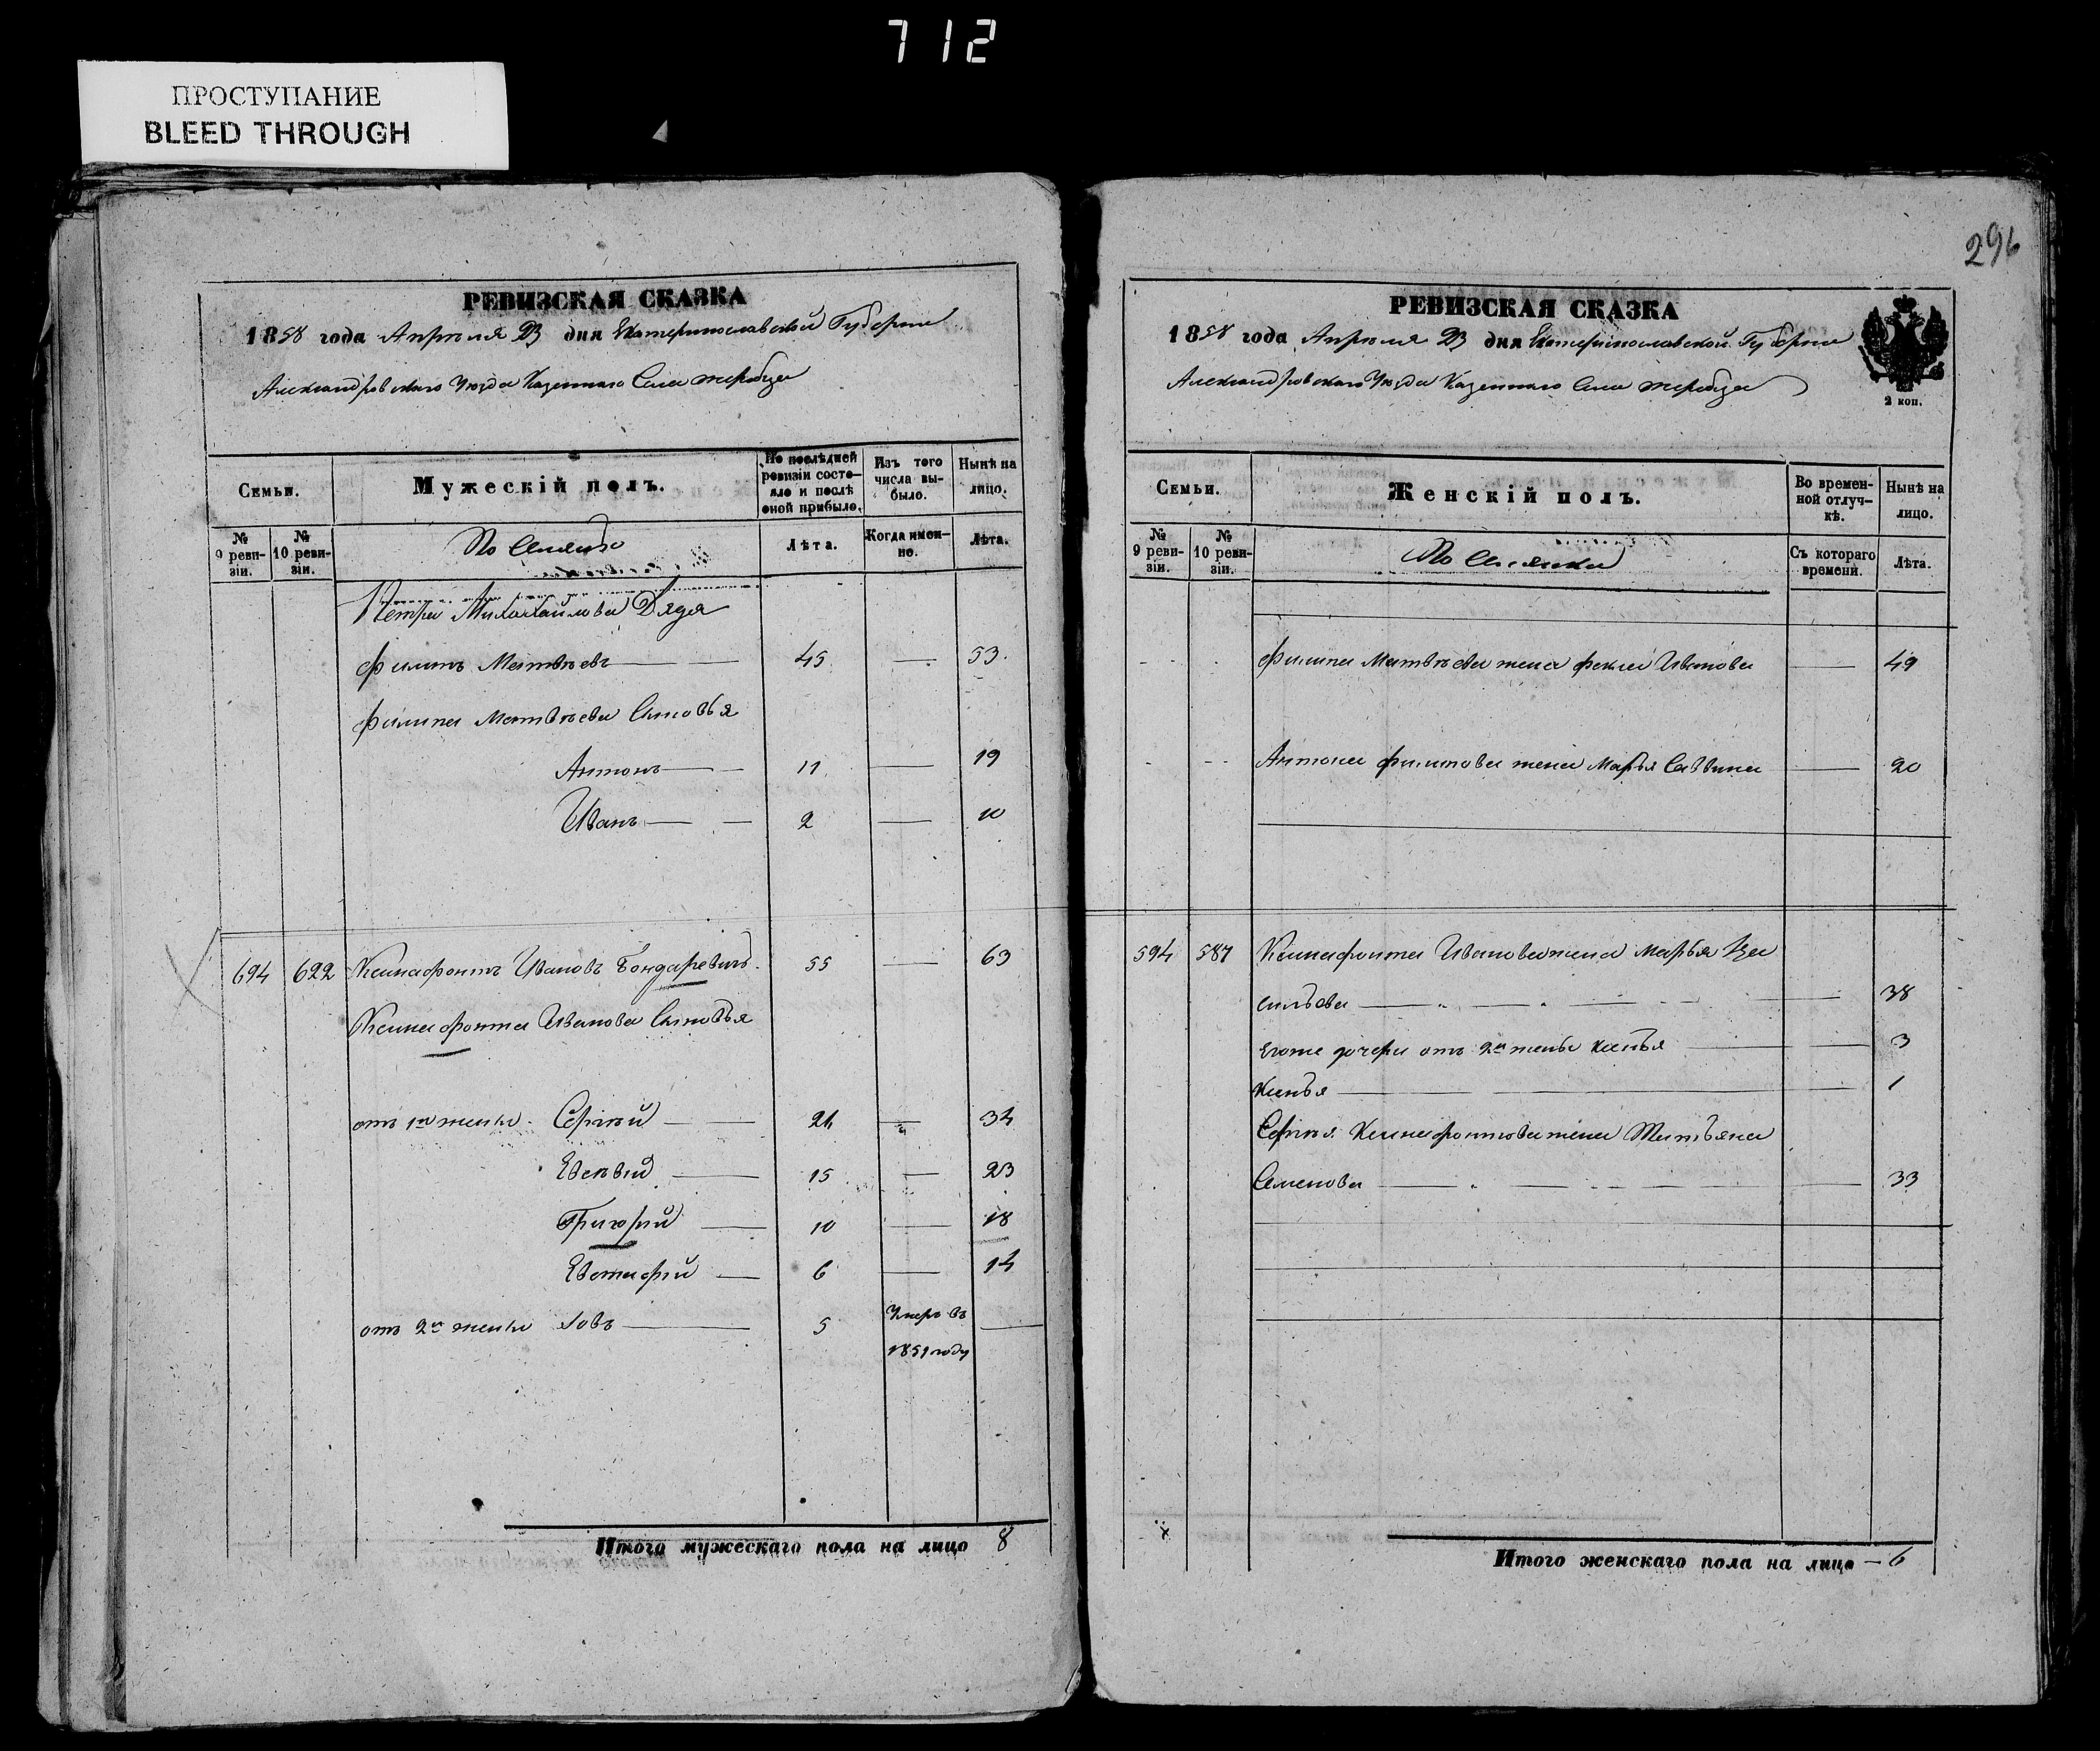 712
ПРОСТУПАНИЕ
BLEED THROUGH
296
РЕВИЗСКАЯ СКАЗКА
1858 года Апреля дня Екатеринославской Губернии
Александровского Уезда Казенного Села Жеребца
Семьи.
Мужескій полъ.
По последней ревизіи состояло и после оной прибыло.
Изъ того числа выбыло.
Ныне на лицо.
№ 9 ревизіи.
№ 10 ревизіи.
Лѣта.
Когда именно.
Лѣта.
Петра Дядя
Филипъ Матвѣевъ 45 53
Филипа Матвѣева Сыновья
Антонъ 11 19
Иванъ 2 10
694 622 Ксенафонтъ Ивановъ Бондаревъ 55 63
Ксенафонта Иванова Сыновья
отъ 1й жены Сергѣй 26 34
15 23
Григорій 10 18
6 14
отъ 2й жены Іовъ 5 Умеръ въ
1851 году
Итого мужескаго пола на лицо 8
РЕВИЗСКАЯ СКАЗКА
1858 года Апреля дня Екатеринославской Губернии
Александровского Уезда Казенного Села Жеребца
2 коп.
Семьи.
Женскій полъ.
Во временной отлучкѣ.
Нынѣ на лицо.
№ 9 ревизіи.
№ 10 ревизіи.
Съ котораго времени.
Лѣта.
Филипа Матвѣева жена Фекла Иванова 49
Антона Филипова жена Марья Саввина 20
594 587 Ксенафонта Иванова жена Марья Ва
сильева 38
Егоже дочери отъ 2й жены 3
1
Сергѣя Ксенафонтова жена Татьяна
Семенова 33
Итого женскаго пола на лицо — 6